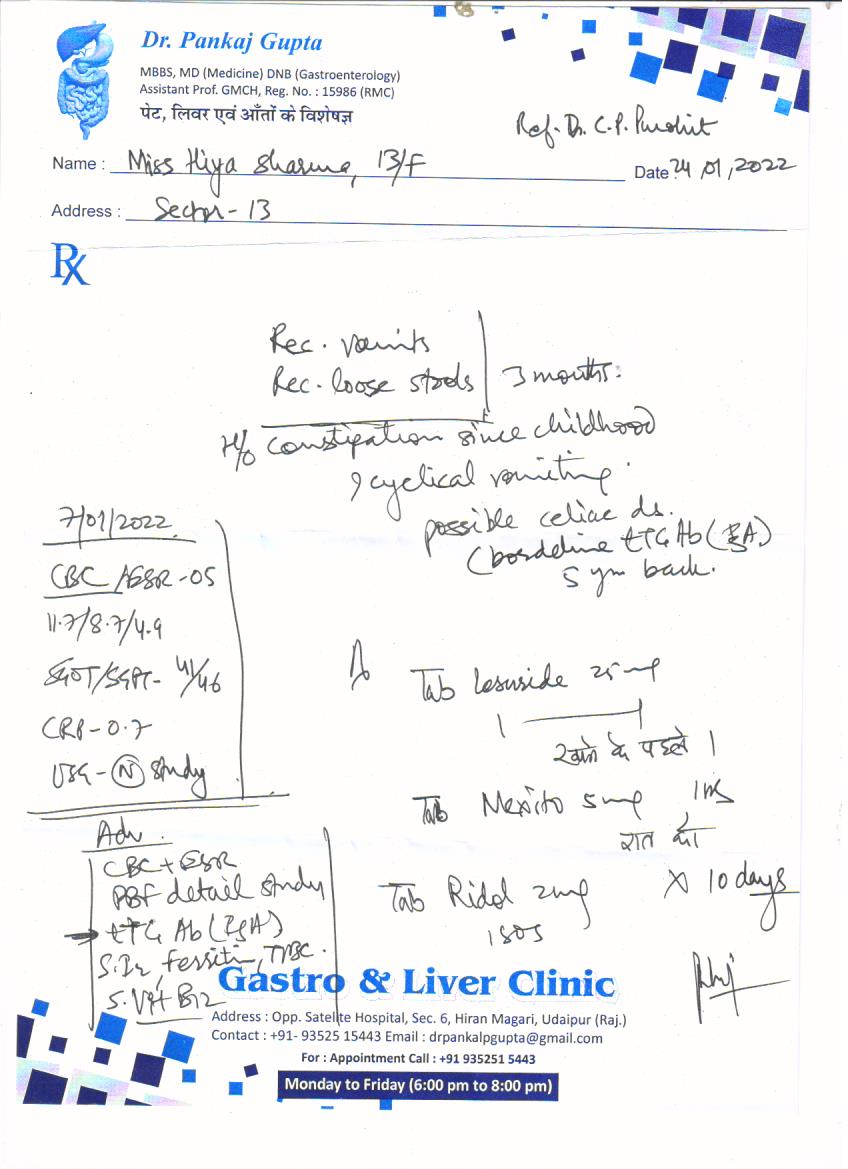 Dr. Pankaj Gupta
MBBS, MD (Medicine) DNB (Gastroenterology)
Assistant Prof. GMCH, Reg. No. : 15986 (RMC)
पेट, लिवर एवं आँतों के विशेषज्ञ
Ref. Dr. C.P. Purohit
Name : Miss Hiya Sharma, 13/F
Date 24,01,2022
Address : Sector-13
Rx
Rec. vomits
Rec. loose stools
3 months.
H/o constipation since childhood
? cyclical vomiting.
possible celiac ds.
(borderline tTG Ab (IgA)
5 yrs back.
7/01/2022
CBC /ESR-05
11.7/8.7/4.9
SGOT/SGPT- 41/46
CRP-0.7
USG- N study
Tab 25 mg
1 1
खाने के पहले
Tab Mexito 5mg 1HS
रात को
Tab Ridol 2mg
1 SOS
X 10 days
Adv.
CBC + ESR
PBF detail study
→ tTG Ab (IgA)
Ferritin, TIBC.
S. Vit B12
Gastro & Liver Clinic
Address : Opp. Satellite Hospital, Sec. 6, Hiran Magari, Udaipur (Raj.)
Contact : +91- 93525 15443 Email : drpankalpgupta@gmail.com
For : Appointment Call : +91 935251 5443
Monday to Friday (6:00 pm to 8:00 pm)